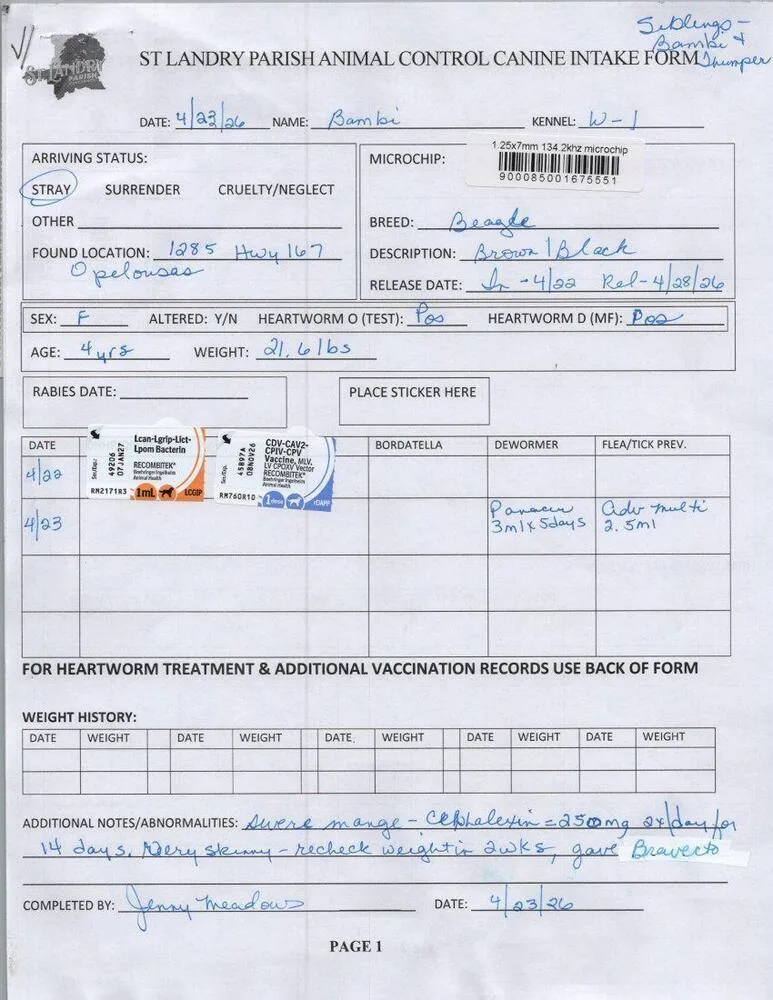 Siblings -
Bambi &
Thumper
ST LANDRY
PARISH
ST LANDRY PARISH ANIMAL CONTROL CANINE INTAKE FORM
DATE: 4/23/26 NAME: Bambi KENNEL: W-1
ARRIVING STATUS:
STRAY SURRENDER CRUELTY/NEGLECT
OTHER
FOUND LOCATION: 1285 Hwy 167
Opelousas
MICROCHIP:
1.25x7mm 134.2khz microchip
900085001675551
BREED: Beagle
DESCRIPTION: Brown / Black
RELEASE DATE: In - 4/22 Rel - 4/28/26
SEX: F ALTERED: Y/N HEARTWORM O (TEST): Pos HEARTWORM D (MF): Pos
AGE: 4 yrs WEIGHT: 21.6 lbs
RABIES DATE:
PLACE STICKER HERE
DATE BORDATELLA DEWORMER FLEA/TICK PREV.
4/22
Lcan-Lgrip-Lict-
Lpom Bacterin
RECOMBITEK®
Boehringer Ingelheim
Animal Health
Ser/Exp.:
49206
07JAN27
RM2171R3 1mL LCGIP
CDV-CAV2-
CPIV-CPV
Vaccine, MLV,
LV CPOXV Vector
RECOMBITEK®
Boehringer Ingelheim
Animal Health
Ser/Exp.:
45897A
08NOV26
RM760R10 1dose rDAPP
4/23 Panacur Adv multi
3ml x 5days 2.5ml
FOR HEARTWORM TREATMENT & ADDITIONAL VACCINATION RECORDS USE BACK OF FORM
WEIGHT HISTORY:
DATE WEIGHT DATE WEIGHT DATE. WEIGHT DATE WEIGHT DATE WEIGHT
ADDITIONAL NOTES/ABNORMALITIES: Severe mange - Cephalexin = 250mg 2x/day for
14 days. Very skinny - recheck weight in 2wks, gave Bravecto
COMPLETED BY: Jenny Meadows DATE: 4/23/26
PAGE 1